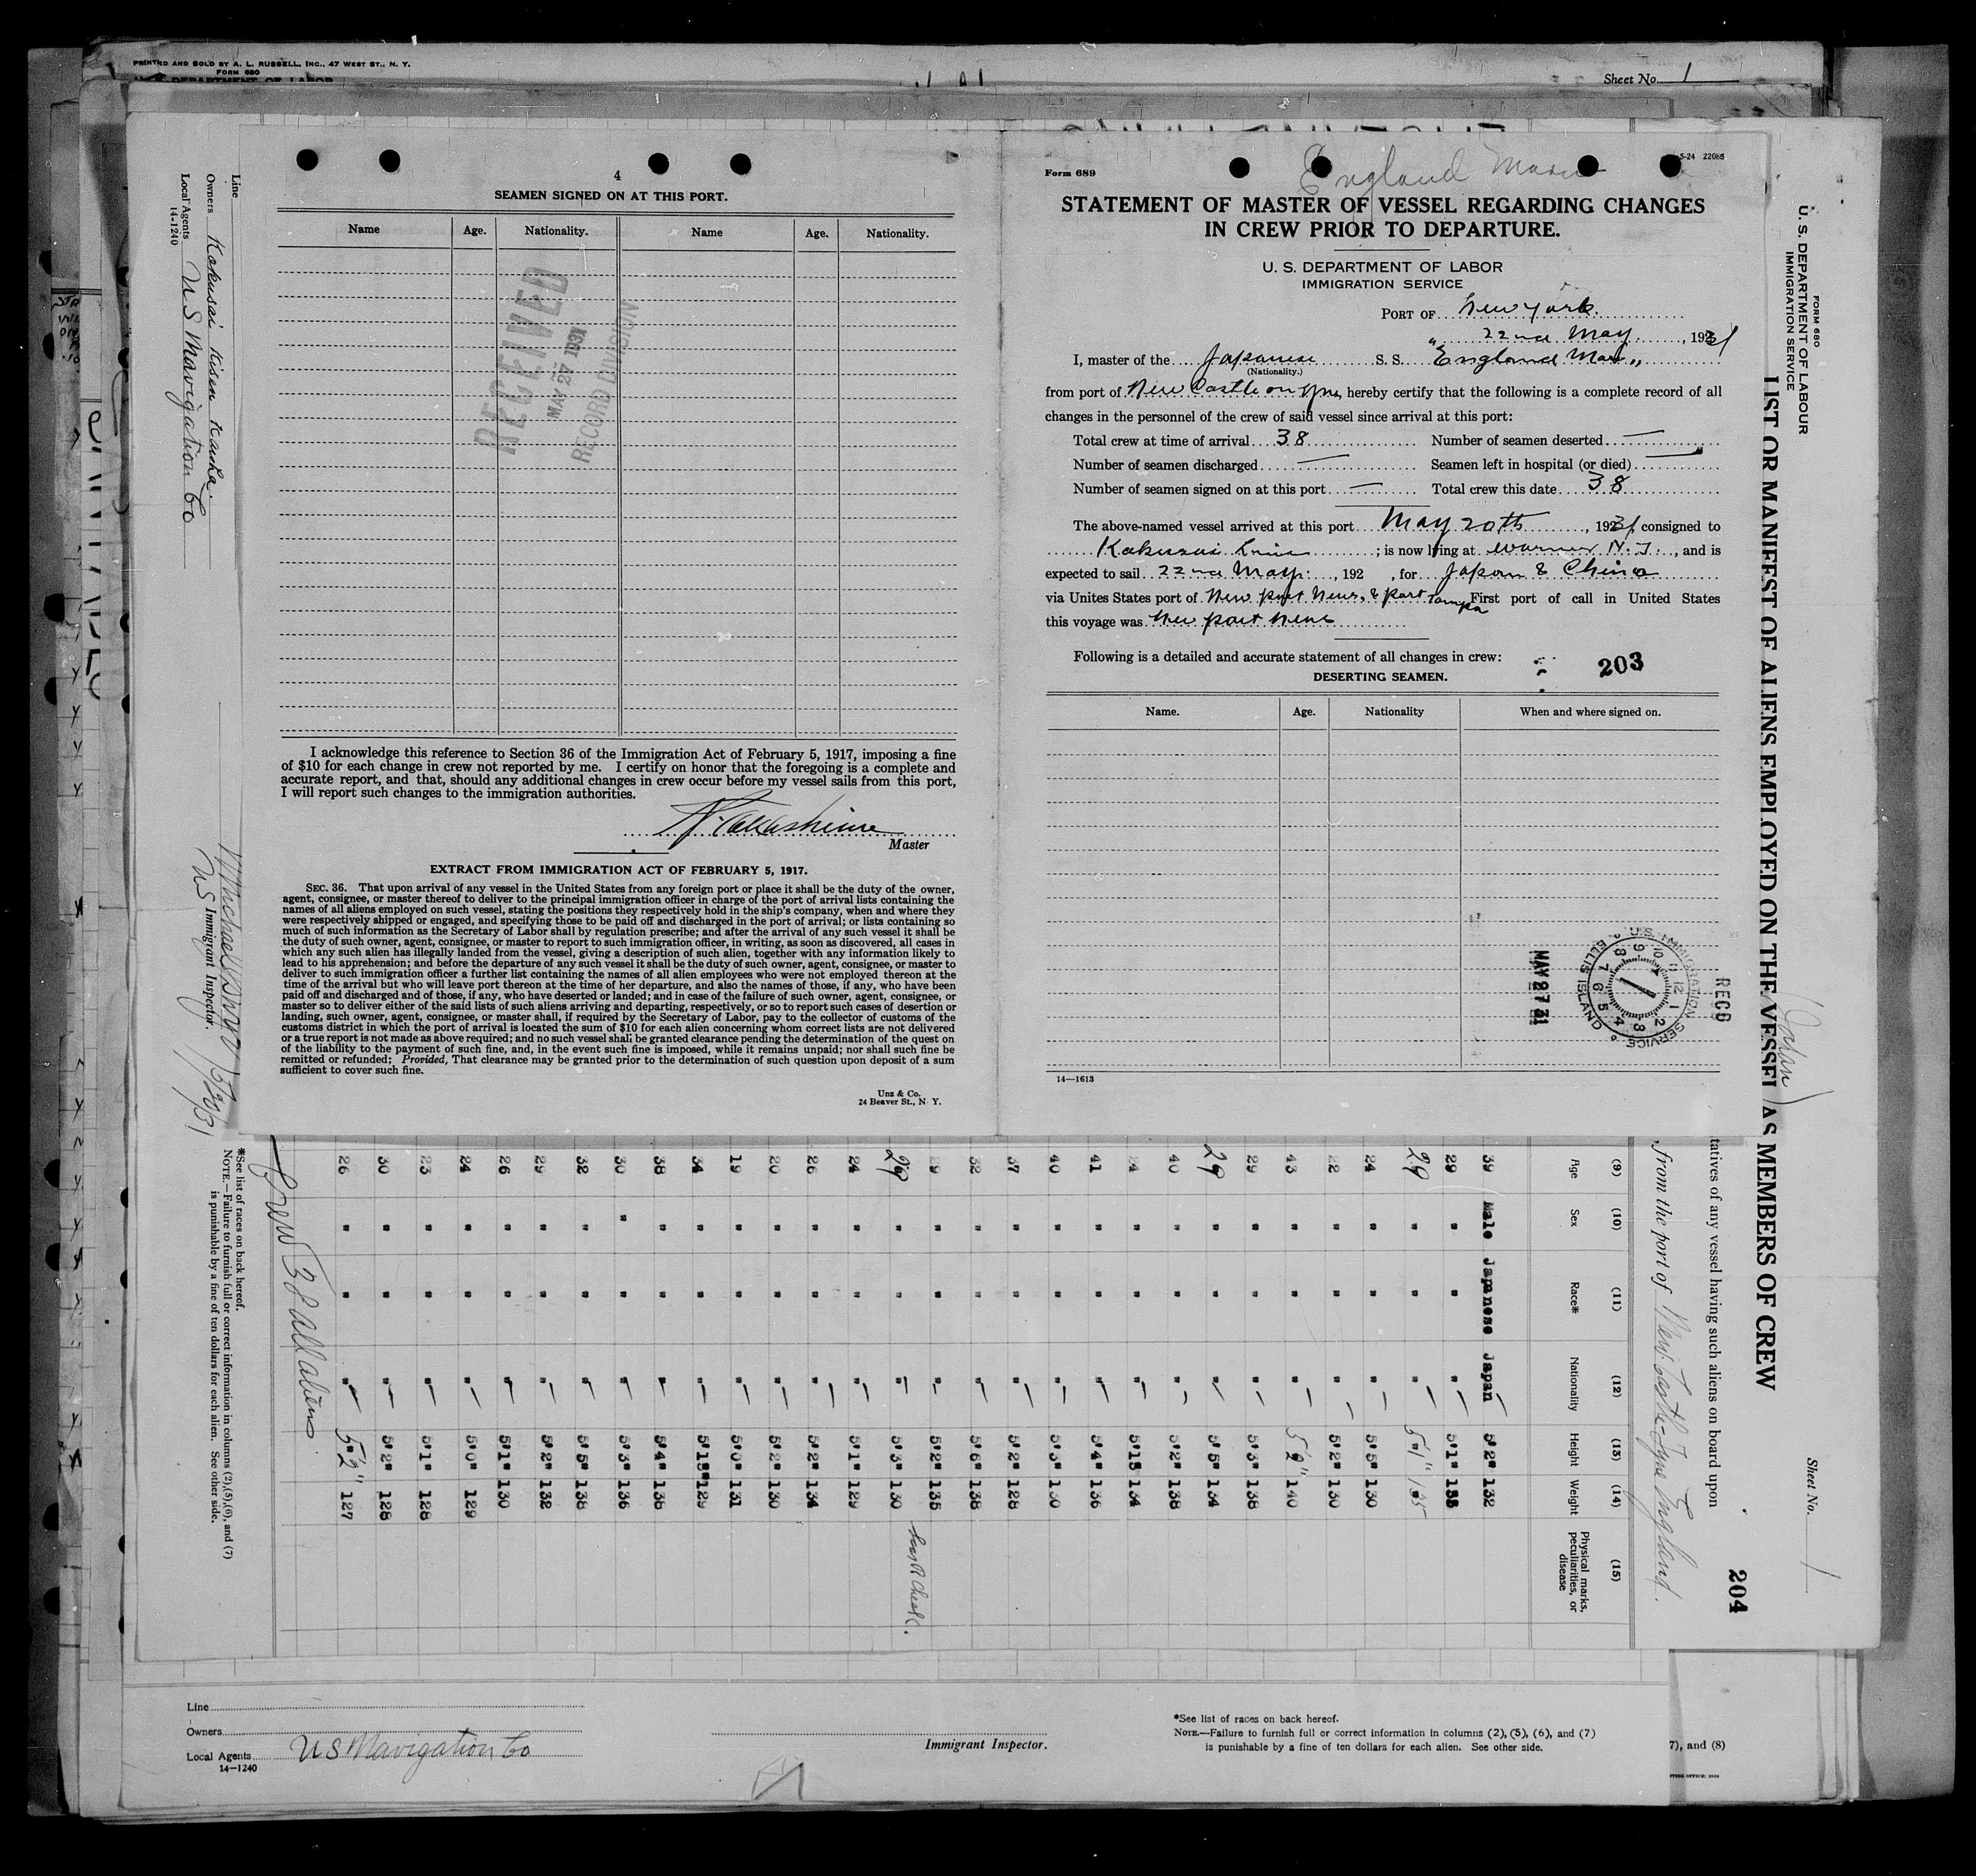 PRINTED AND SOLD BY A. L. RUSSELL, INC., 47 WEST ST., N. Y.
FORM 680
Sheet No. 1
4
SEAMEN SIGNED ON AT THIS PORT.
Name Age. Nationality. Name Age. Nationality.
RECEIVED
MAY 27 1931
RECORD DIVISION
I acknowledge this reference to Section 36 of the Immigration Act of February 5, 1917, imposing a fine
of $10 for each change in crew not reported by me. I certify on honor that the foregoing is a complete and
accurate report, and that, should any additional changes in crew occur before my vessel sails from this port,
I will report such changes to the immigration authorities.
Master
EXTRACT FROM IMMIGRATION ACT OF FEBRUARY 5, 1917.
SEC. 36. That upon arrival of any vessel in the United States from any foreign port or place it shall be the duty of the owner,
agent, consignee, or master thereof to deliver to the principal immigration officer in charge of the port of arrival lists containing the
names of all aliens employed on such vessel, stating the positions they respectively hold in the ship's company, when and where they
were respectively shipped or engaged, and specifying those to be paid off and discharged in the port of arrival; or lists containing so
much of such information as the Secretary of Labor shall by regulation prescribe; and after the arrival of any such vessel it shall be
the duty of such owner, agent, consignee, or master to report to such immigration officer, in writing, as soon as discovered, all cases in
which any such alien has illegally landed from the vessel, giving a description of such alien, together with any information likely to
lead to his apprehension; and before the departure of any such vessel it shall be the duty of such owner, agent, consignee, or master to
deliver to such immigration officer a further list containing the names of all alien employees who were not employed thereon at the
time of the arrival but who will leave port thereon at the time of her departure, and also the names of those, if any, who have been
paid off and discharged and of those, if any, who have deserted or landed; and in case of the failure of such owner, agent, consignee, or
master so to deliver either of the said lists of such aliens arriving and departing, respectively, or so to report such cases of desertion or
landing, such owner, agent, consignee, or master shall, if required by the Secretary of Labor, pay to the collector of customs of the
customs district in which the port of arrival is located the sum of $10 for each alien concerning whom correct lists are not delivered
or a true report is not made as above required; and no such vessel shall be granted clearance pending the determination of the quest on
of the liability to the payment of such fine, and, in the event such fine is imposed, while it remains unpaid; nor shall such fine be
remitted or refunded; Provided, That clearance may be granted prior to the determination of such question upon deposit of a sum
sufficient to cover such fine.
Unz & Co.
24 Beaver St., N. Y.
Form 689
England Maru
5-24 22088
STATEMENT OF MASTER OF VESSEL REGARDING CHANGES
IN CREW PRIOR TO DEPARTURE.
U. S. DEPARTMENT OF LABOR
IMMIGRATION SERVICE
PORT OF New York.
22nd May, 1931
I, master of the Japanese S. S. "England Maru"
(Nationality.)
from port of New Castle on Tyne, hereby certify that the following is a complete record of all
changes in the personnel of the crew of said vessel since arrival at this port:
Total crew at time of arrival 38 Number of seamen deserted —
Number of seamen discharged — Seamen left in hospital (or died) —
Number of seamen signed on at this port — Total crew this date 38
The above-named vessel arrived at this port May 20th, 1931, consigned to
Kokusai Line; is now lying at Warner N. J., and is
expected to sail 22nd May, 192 , for Japan & China
via Unites States port of New port News, & port Tampa First port of call in United States
this voyage was New port News
Following is a detailed and accurate statement of all changes in crew:
203
DESERTING SEAMEN.
Name. Age. Nationality When and where signed on.
MAY 27 31
U. S. IMMIGRATION SERVICE
ELLIS ISLAND
REC'D
14—1613
FORM 680
U. S. DEPARTMENT OF LABOUR
IMMIGRATION SERVICE
LIST OR MANIFEST OF ALIENS EMPLOYED ON THE VESSEL AS MEMBERS OF CREW
(Japan)
Sheet No. 1
204
tatives of any vessel having such aliens on board upon
, from the port of New Castle-Tyne England.
(9) (10) (11) (12) (13) (14) (15)
Age Sex Race* Nationality Height Weight Physical marks, peculiarities, or disease
39 Male Japanese Japan 5'2" 132
29 " " " 5'1" 138
29 " " " 5'1" 135
24 " " " 5'5" 130
22 " " " 5'2" 130
43 " " " 5'2" 140
29 " " " 5'3" 138
29 " " " 5'5" 134
40 " " " 5'2" 138
24 " " " 134
41 " " " 5'4" 136
40 " " " 5'3" 130
37 " " " 5'2" 128
32 " " " 5'6" 138
29 " " " 5'2" 135
29 " " " 5'3" 130
24 " " " 5'1" 129
26 " " " 5'2" 134
20 " " " 5'2" 130
19 " " " 5'0" 131
34 " " " 129
38 " " " 5'4" 138
30 " " " 5'3" 136
32 " " " 5'5" 138
29 " " " 5'2" 132
26 " " " 5'1" 130
24 " " " 5'0" 129
23 " " " 5'1" 128
30 " " " 5'2" 128
26 " " " 5'2" 127
Crew 38 all aliens
*See list of races on back hereof.
NOTE.—Failure to furnish full or correct information in columns (2),(5),(6), and (7)
is punishable by a fine of ten dollars for each alien. See other side.
Line
Owners Kokusai Kisen Kaisha.
Local Agents U S Navigation Co
14-1240
US Immigrant Inspector.
Line
Owners
Local Agents U S Navigation Co
14—1240
Immigrant Inspector.
*See list of races on back hereof.
NOTE.—Failure to furnish full or correct information in columns (2), (5), (6), and (7)
is punishable by a fine of ten dollars for each alien. See other side.
7), and (8)